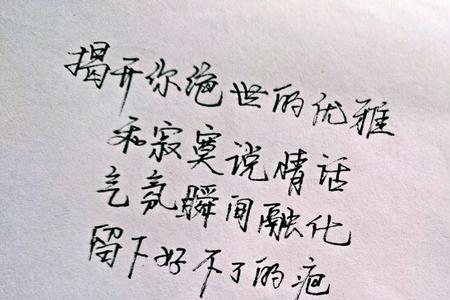 揭开你绝世的优雅
和寂寞说情话
气氛瞬间融化
留下好不了的疤